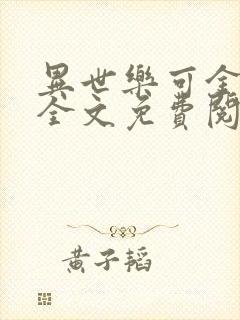 異世樂可全
全文免費閱
黃子韜